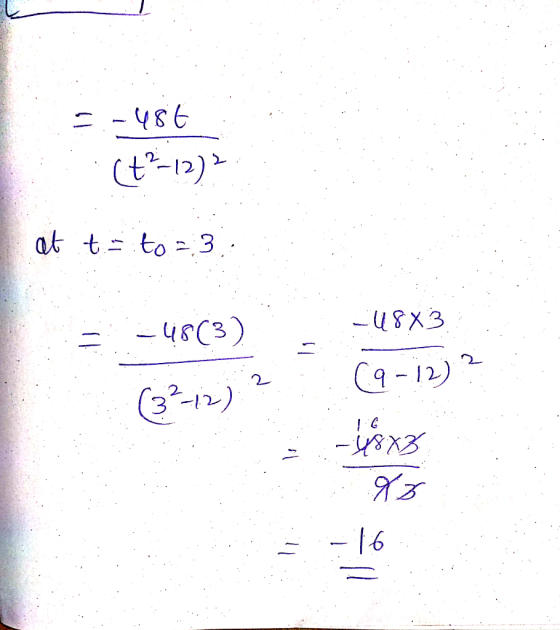 = -48t
(t²-12)²
at t = t₀ = 3.
= -48(3) = -48×3
(3²-12)² (9-12)²
16
= -48×3
9 3
= -16